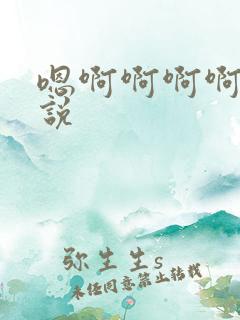 嗯啊啊啊啊
說
弥生生s
未经同意禁止转载